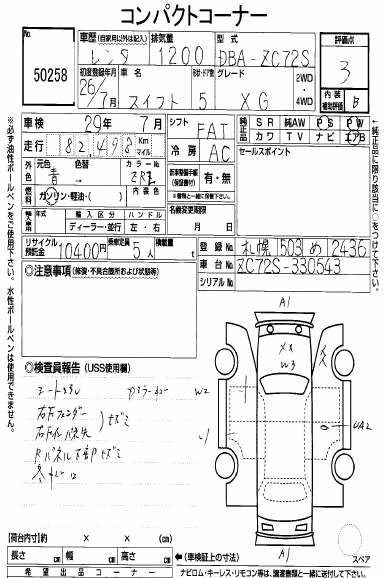 コンパクトコーナー
No. 50258
車歴 (自家用以外は記入) レンタ
排気量 1200
型式 DBA-ZC72S
評価点 3
初度登録年月 26/7月
車名 スイフト
ドア 5
グレード XG
2WD・4WD
内装補助評価 B
車検 29年 7月
シフト FAT
純正品 SR 純AW PS PW
カワ TV ナビ エアB
走行 82,498 Km マイル
冷房 AC
セールスポイント
外元色 青 色替 カラーNo.
燃料 ガソリン・軽油・( ) 内装色
新車整備手帳(保証書付) 有・無
※書類と一緒に保管して下さい。
輸入車用 年式 輸入区分 ハンドル
ディーラー・並行 左・右
名義変更期限 月 日
リサイクル預託金 10400円
乗車定員 5人
積載量 t
登録No. 札幌 503 め 2436
車台No. ZC72S-330543
シリアルNo.
◎注意事項(修復・不具合箇所および状態等)
※必ず油性ボールペンをご使用下さい。水性ボールペンは使用できません。
純正品に限り該当に○をして下さい。
◎検査員報告(USS使用欄)
シートスレ
右Fフェンダー
キズ
A1
XX
W3
W2
UA2
A1
[荷台内寸]約 × × (cm)
←(車検証上の寸法)
長さ cm 幅 cm 高さ cm
スペア
希望出品コーナー
ナビロム・キーレス・リモコン等は、譲渡書類と一緒に送付して下さい。